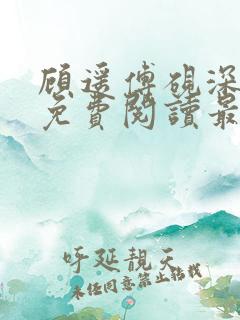 顾遥傅砚深
免費閱讀最
呼延靚天
未经同意禁止转载